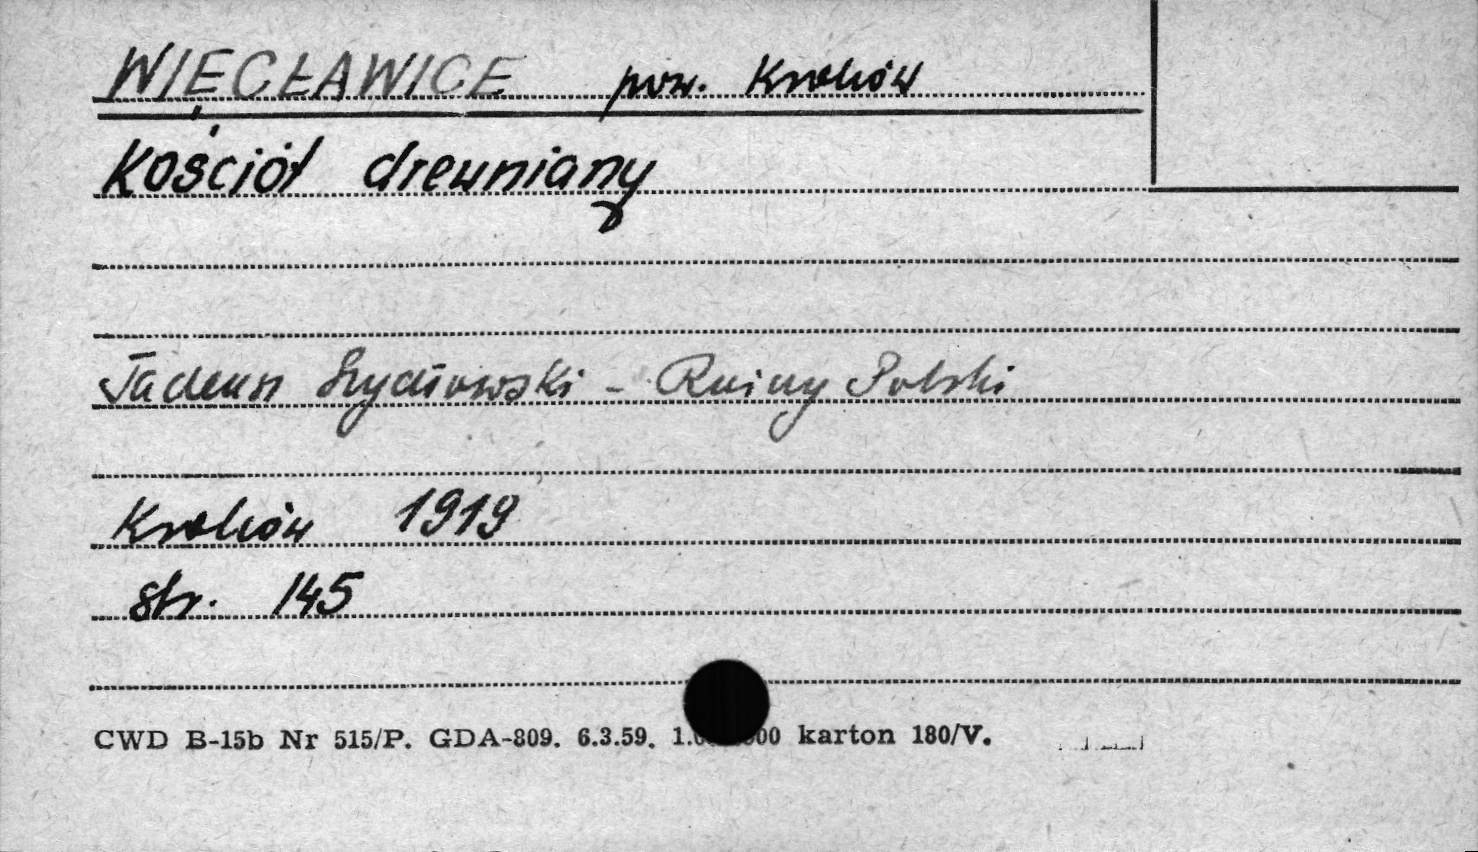 WIĘCŁAWICE pow. Kraków
Kościół drewniany
Tadeusz Szydłowski - Ruiny Polski
Kraków 1919
str. 145
CWD B-15b Nr 515/P. GDA-809. 6.3.59. karton 180/V.